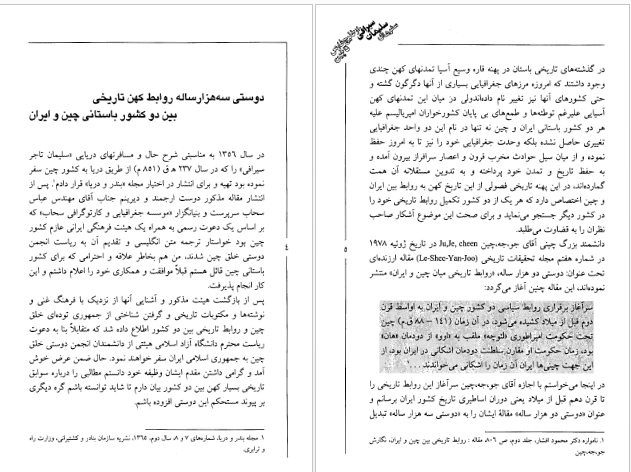 دوستی سه‌هزارساله روابط کهن تاریخی
بین دو کشور باستانی چین و ایران
در سال ۱۳۵۶ به مناسبتی شرح حال و مسافرتهای دریایی «سلیمان تاجر
سیرافی» را که در سال ۲۳۷ ه‍ ق (۸۵۱ م) از طریق دریا به کشور چین سفر
نموده بود تهیه و برای انتشار در اختیار مجله «بندر و دریا» قرار دادم.¹ پس از
انتشار مقاله مذکور دوست ارجمند و دیرینم جناب آقای مهندس عباس
سحاب سرپرست و بنیانگزار «موسسه جغرافیایی و کارتوگرافی سحاب» که
بر اساس یک دعوت رسمی به همراه یک هیئت فرهنگی ایرانی عازم کشور
چین بود خواستار ترجمه متن انگلیسی و تقدیم آن به ریاست انجمن
دوستی خلق چین شدند، من هم بخاطر علاقه و احترامی که برای کشور
باستانی چین قائل هستم قبلاً موافقت و همکاری خود را اعلام داشتم و این
کار انجام پذیرفت.
پس از بازگشت هیئت مذکور و آشنایی آنها از نزدیک با فرهنگ غنی و
نوشته‌ها و مکتوبات تاریخی و گرفتن شناختی از جمهوری توده‌ای خلق
چین و روابط تاریخی بین دو کشور اطلاع داده شد که متقابلاً بنا به دعوت
ریاست محترم دانشگاه آزاد اسلامی هیئتی از دانشمندان انجمن دوستی خلق
چین به جمهوری اسلامی ایران سفر خواهند نمود. حال ضمن عرض خوش
آمد و گرامی داشتن مقدم ایشان وظیفه خود دانستم مطالبی را درباره سوابق
تاریخی بسیار کهن بین دو کشور بیان دارم تا شاید توانسته باشم گره دیگری
بر پیوند مستحکم این دوستی افزوده باشم.
۱. مجله بندر و دریا، شماره‌های ۷ و ۸، سال دوم، ۱۳۶۵، نشریه سازمان بنادر و کشتیرانی، وزارت راه
و ترابری.
٤
سلیمان سیرافی
در گذشته‌های تاریخی باستان در پهنه قاره وسیع آسیا تمدنهای کهن چندی
وجود داشتند که امروزه مرزهای جغرافیایی بسیاری از آنها دگرگون گشته و
حتی کشورهای آنها نیز تغییر نام داده‌اند ولی در میان این تمدنهای کهن
آسیایی علیرغم توطئه‌ها و طمع‌های بی پایان کشورخواران امپریالیسم علیه
هر دو کشور باستانی ایران و چین نه تنها در نام این دو واحد جغرافیایی
تغییری حاصل نشده بلکه وحدت جغرافیایی خود را نیز تا به امروز حفظ
نموده و از میان سیل حوادث مخرب قرون و اعصار سرافراز بیرون آمده و
به حفظ تاریخ و تمدن خود پرداخته و به تدوین مستقلانه آن همت
گمارده‌اند، در این پهنه تاریخی فصولی از این تاریخ کهن به روابط بین ایران
و چین اختصاص دارد که هر یک از دو کشور تکمیل روابط تاریخی خود را
در کشور دیگر جستجو می‌نماید و برای صحت این موضوع آشکار صاحب
نظران را به قضاوت می‌طلبد.
دانشمند بزرگ چینی آقای جو،جه،چین Ju,Je, cheen در تاریخ ژوئیه ۱۹۷۸
در شماره هفتم مجله تحقیقات تاریخی (Le-Shee-Yan-Joo) مقاله ارزنده‌ای
تحت عنوان: دوستی دو هزار ساله، «روابط تاریخی میان چین و ایران» منتشر
نموده‌اند، این مقاله چنین آغاز می‌گردد:
سرآغاز برقراری روابط سیاسی دو کشور چین و ایران به اواسط قرن
دوم قبل از میلاد کشیده می‌شود. در آن زمان (۱۴۱ – ۸۸ ق.م) چین
تحت حکومت امپراطوری «لئوچه» ملقب به «اوو» از دودمان «هان»
بود، زمان حکومت او مقارن سلطنت دودمان اشکانی در ایران بود، از
این جهت چینی‌ها ایران آن زمان را اشکانی می‌خواندند...¹
در اینجا می‌خواستم با اجازه آقای جو،جه،چین سرآغاز این روابط تاریخی را
تا قرن دهم قبل از میلاد یعنی دوران اساطیری تاریخ کشور ایران برسانم و
عنوان «دوستی دو هزار ساله» مقالهٔ ایشان را به «دوستی سه هزار ساله» تبدیل
۱. نامواره دکتر محمود افشار، جلد دوم، ص ۸۰۶، مقاله: روابط تاریخی بین چین و ایران، نگارش
جو،جه،چین
٥